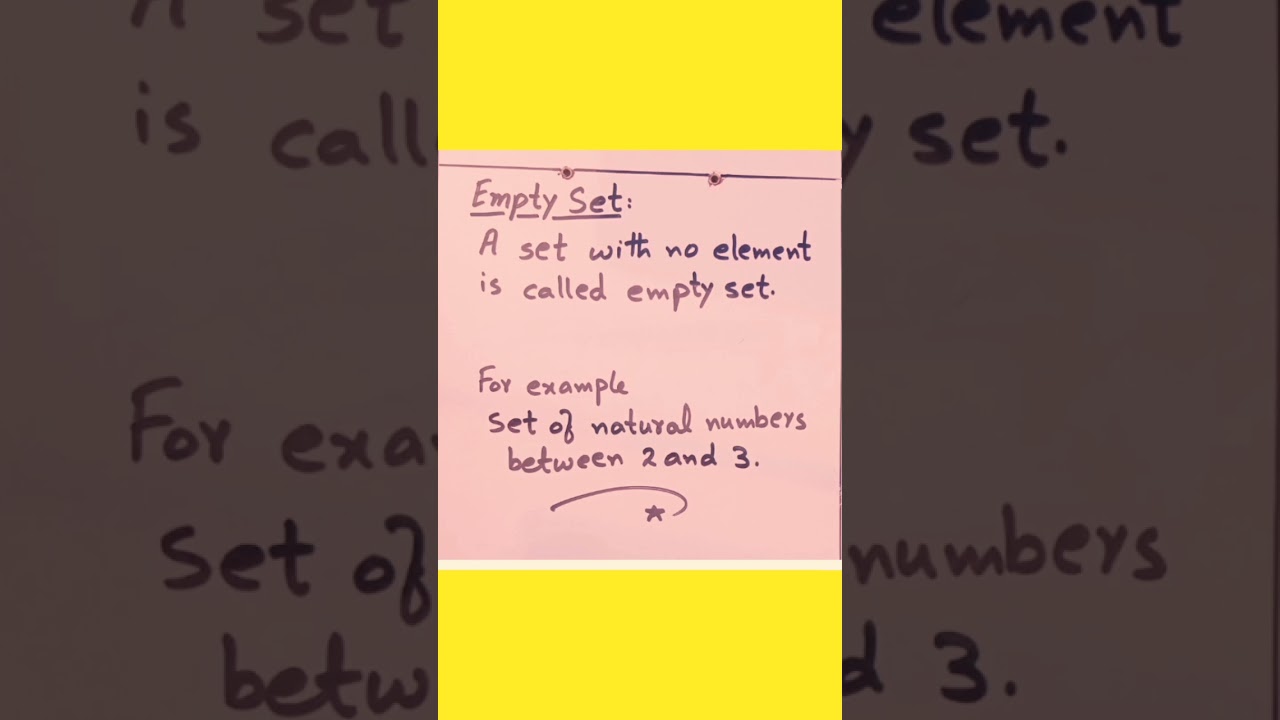 Empty Set:
A set with no element
is called empty set.
For example
Set of natural numbers
between 2 and 3.